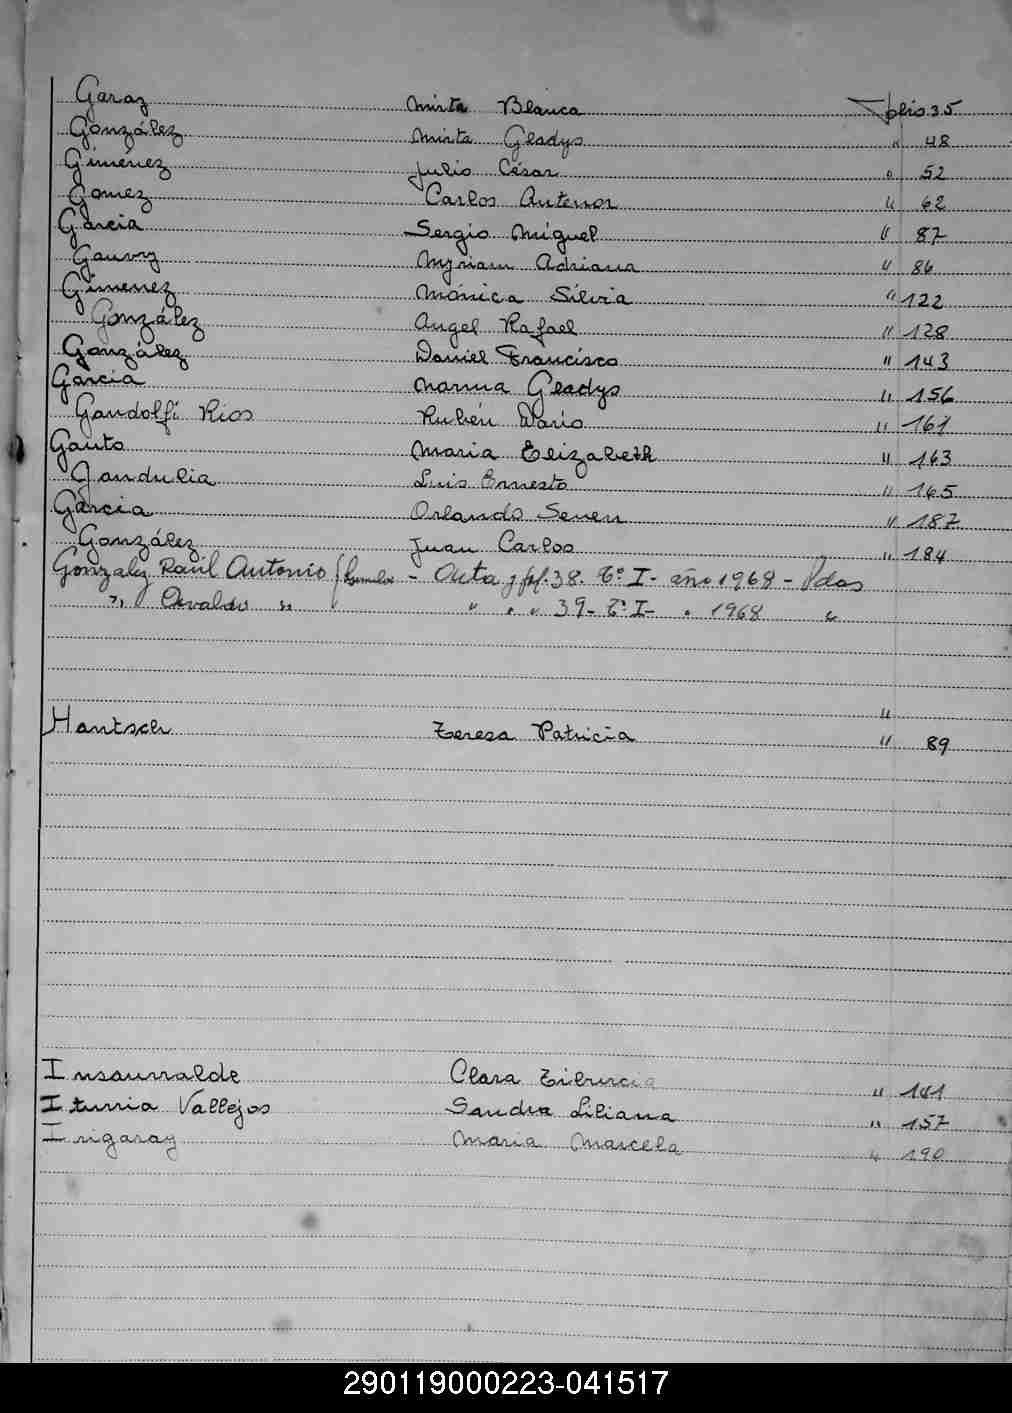 Garay Mirta Blanca Folio 35
González Mirta Gladys " 48
Giménez Julio César " 52
Gomez Carlos Antenor " 62
Garcia Sergio Miguel " 87
Gauvry Myriam Adriana " 86
Gimenez Mónica Silvia " 122
González Angel Rafael " 128
González Daniel Francisco " 143
Garcia Norma Gladys " 156
Gandolfi Rios Rubén Dario " 161
Gauto Maria Elizabeth " 163
Gandulia Luis Ernesto " 165
Garcia Orlando Seven " 187
González Juan Carlos " 184
Gonzalez Raúl Antonio - Acta 38. Tº I - año 1968 -
" Osvaldo " " " " 39 - Tº I - " 1968 "
"
Hantsch Tereza Patricia " 89
Insaurralde Clara Tiburcia " 141
Iturria Vallejos Sandra Liliana " 157
Irigaray Maria Marcela " 190
290119000223-041517